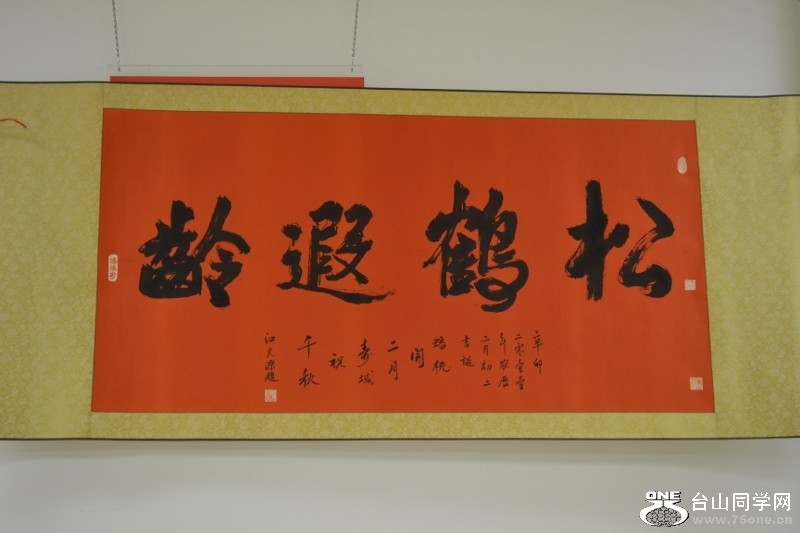 松鶴遐齡
辛卯
二零壹壹
年农曆
二月初二
吉誕
蟠桃
開
二月
壽城
祝
千秋
ONE
台山同学网
www.75one.cn